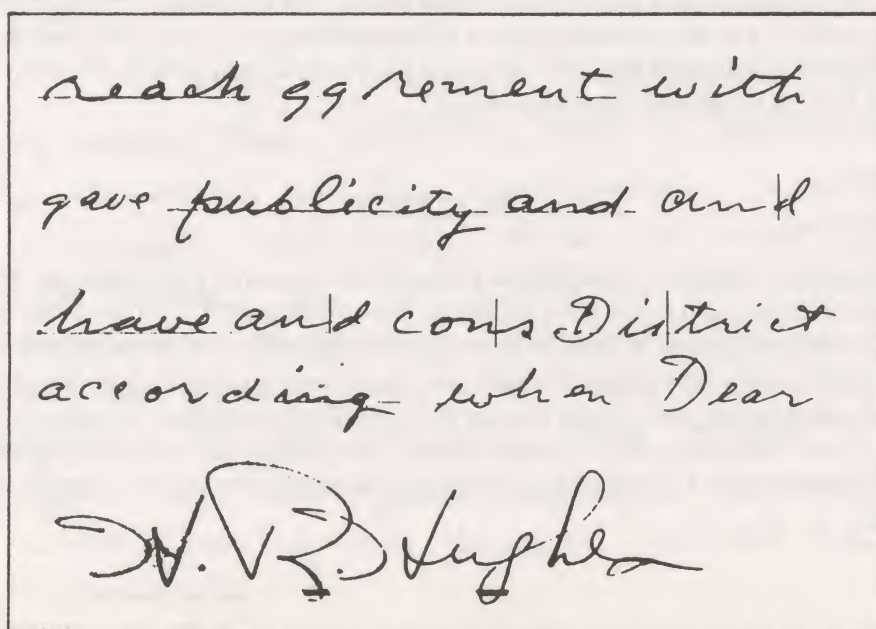 reach agrement with
gave publicity and and
have and cons District
according when Dear
H. R. Hughes